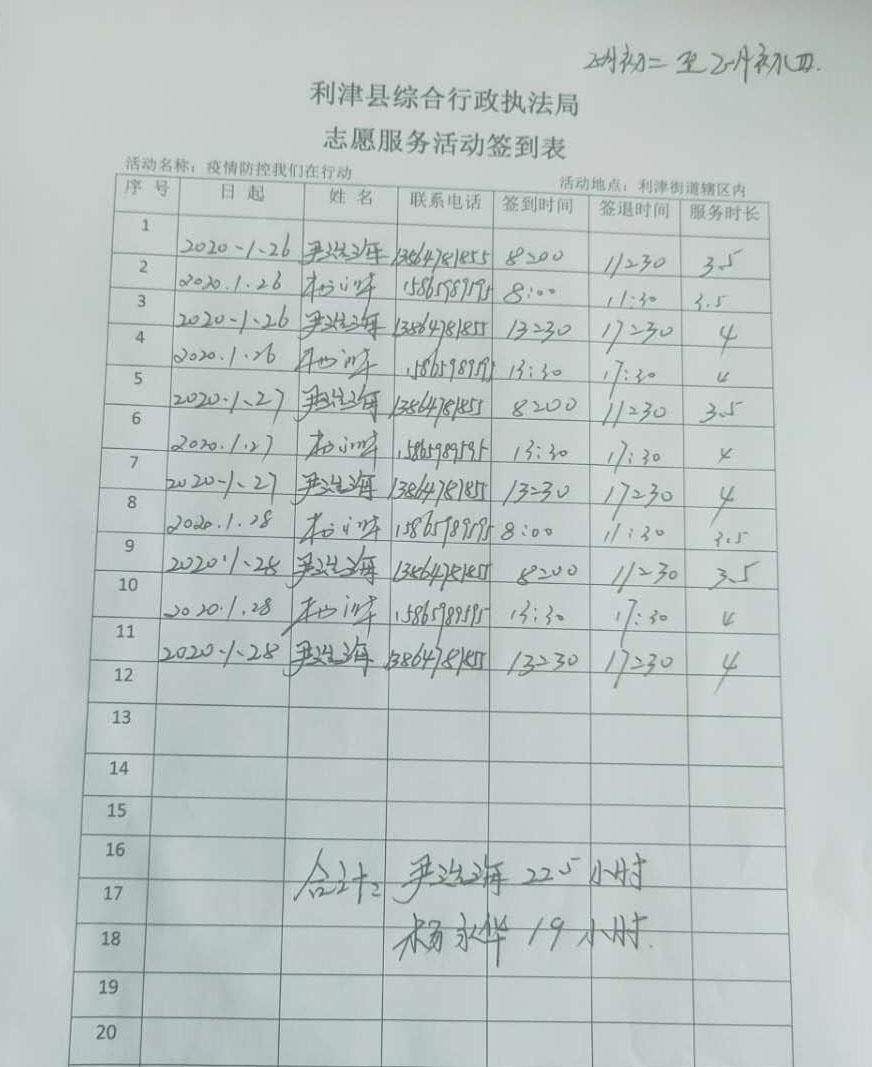 正月初二至正月初四.
利津县综合行政执法局
志愿服务活动签到表
活动名称：疫情防控我们在行动 活动地点：利津街道辖区内
序号 日起 姓名 联系电话 签到时间 签退时间 服务时长
1 2020-1-26 尹海 13864781855 8:00 11:30 3.5
2 2020.1.26 杨永华 15865989595 8:00 11:30 3.5
3 2020-1-26 尹海 13864781855 13:30 17:30 4
4 2020.1.26 杨永华 15865989595 13:30 17:30 4
5 2020-1-27 尹海 13864781855 8:00 11:30 3.5
6 2020.1.27 杨永华 15865989595 13:30 17:30 4
7 2020-1-27 尹海 13864781855 13:30 17:30 4
8 2020.1.28 杨永华 15865989595 8:00 11:30 3.5
9 2020-1-28 尹海 13864781855 8:00 11:30 3.5
10 2020.1.28 杨永华 15865989595 13:30 17:30 4
11 2020-1-28 尹海 13864781855 13:30 17:30 4
12
13
14
15
16
合计: 尹海 22.5 小时
17
杨永华 19 小时.
18
19
20